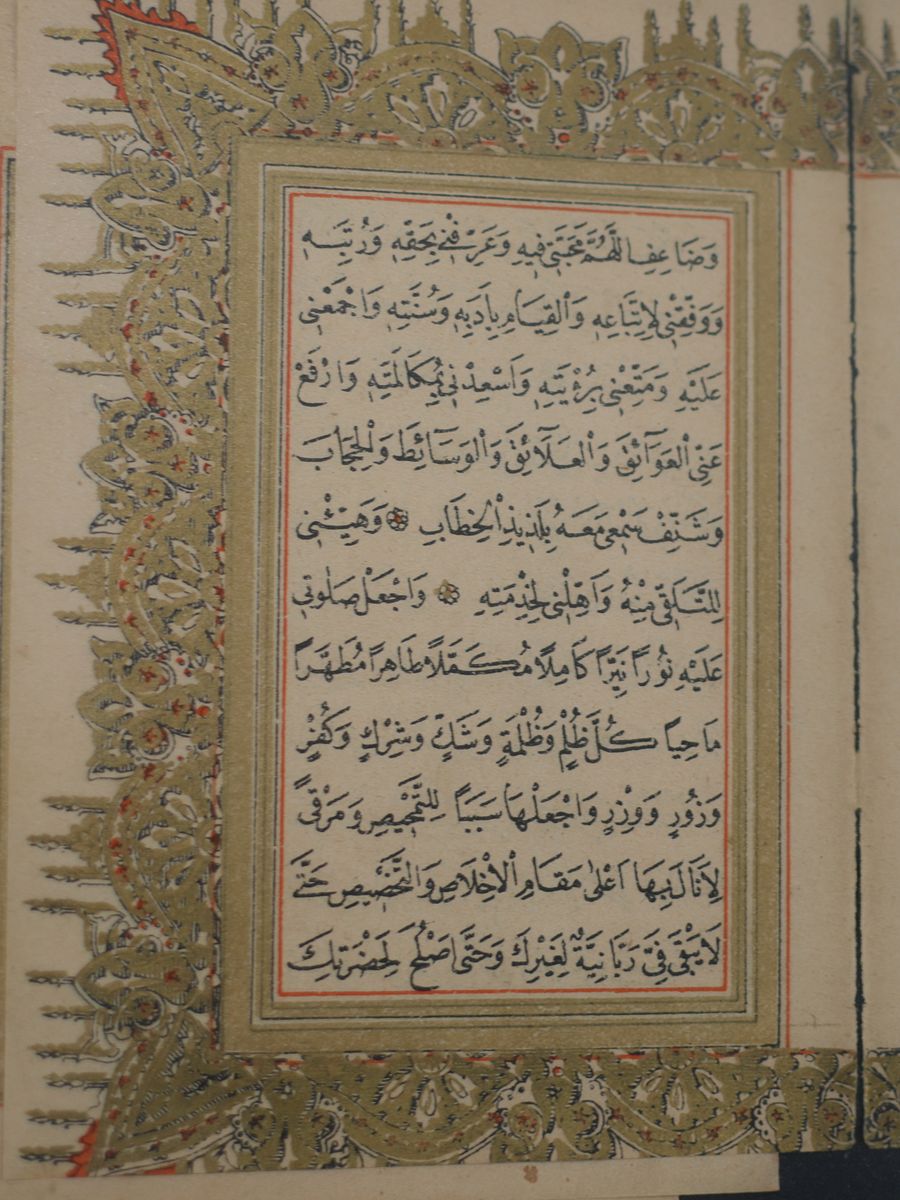 وَضَاعِفِ اللَّهُمَّ مَحَبَّتِي فِيهِ وَعَرِّفْنِي بِحَقِّهِ وَرُتَبِهِ
وَوَفِّقْنِي لِاتِّبَاعِهِ وَالْقِيَامِ بِاَدَبِهِ وَسُنَّتِهِ وَاجْمَعْنِي
عَلَيْهِ وَمَتِّعْنِي بِرُؤْيَتِهِ وَاَسْعِدْنِي بِمُكَالَمَتِهِ وَارْفَعْ
عَنِّي الْعَوَآئِقَ وَالْعَلَآئِقَ وَالْوَسَآئِطَ وَالْحِجَابَ
وَشَنِّفْ سَمْعِي مَعَهُ بِلَذِيذِ الْخِطَابِ وَهَيِّئْنِي
لِلتَّلَقِّي مِنْهُ وَاَهِّلْنِي لِخِدْمَتِهِ وَاجْعَلْ صَلٰوتِي
عَلَيْهِ نُورًا نَيِّرًا كَامِلًا مُكَمَّلًا طَاهِرًا مُطَهَّرًا
مَاحِيًا كُلَّ ظُلْمٍ وَظُلْمَةٍ وَشَكٍّ وَشِرْكٍ وَكُفْرٍ
وَزُورٍ وَوِزْرٍ وَاجْعَلْهَا سَبَبًا لِلتَّمْحِيصِ وَمَرْقًى
لِاَنَالَ بِهَا اَعْلٰى مَقَامِ الْاِخْلَاصِ وَالتَّخْصِيصِ حَتّٰى
لَا يَبْقٰى فِيَّ رَبَّانِيَّةٌ لِغَيْرِكَ وَحَتّٰى اَصْلُحَ لِحَضْرَتِكَ